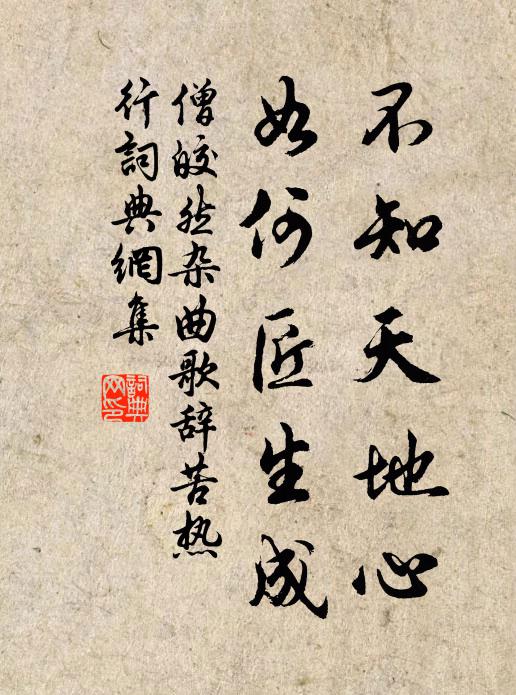 不知天地心
如何匠生成
僧皎然杂曲歌辞苦热
行詞典網集
詞典网印